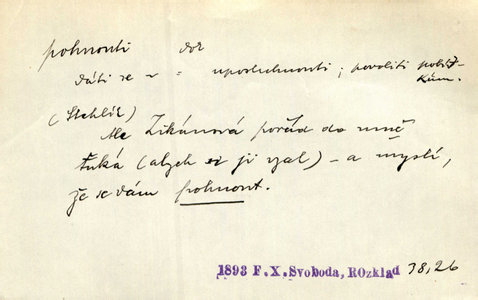 pohnouti dok
dáti se ~ = uposlechnouti; povoliti pobíd-
kám.
(Stehlík)
Ale Zikánová pořád do mně
ťuká (abych si ji vzal) – a myslí,
že se dám pohnout.
1893 F.X.Svoboda, ROzklad 38,26